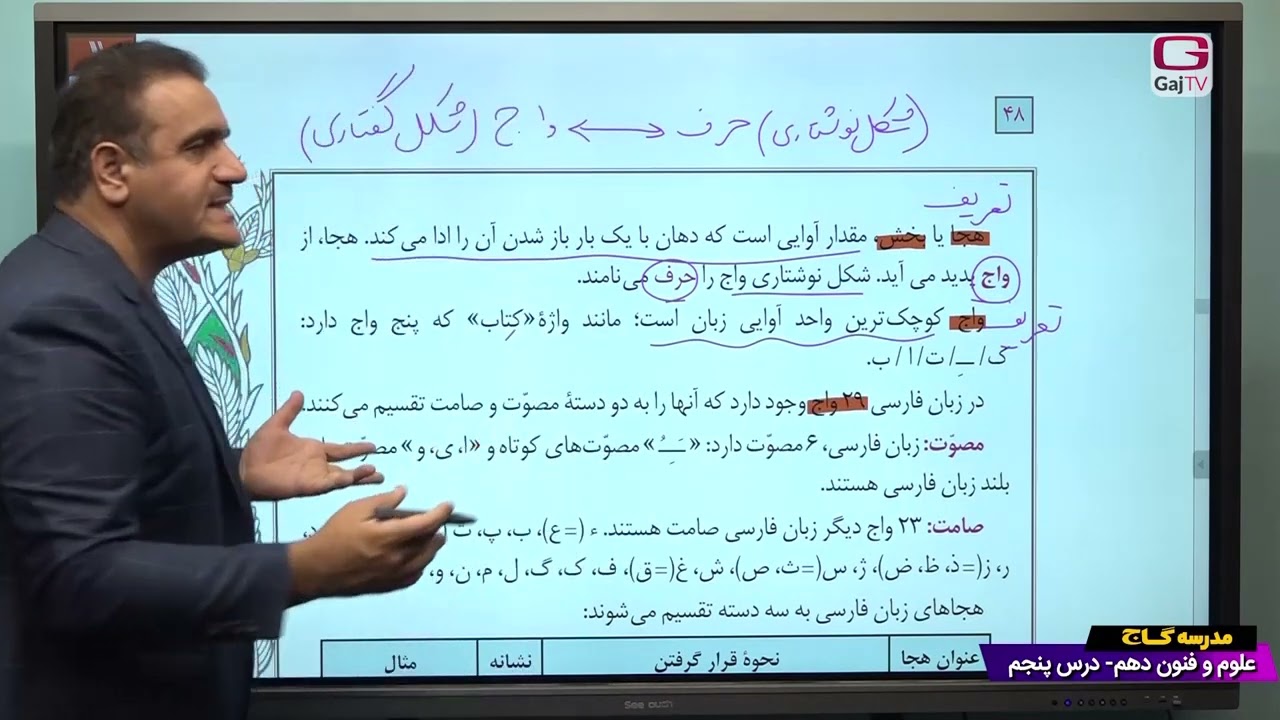 G
GajTV
۴۸
(شکل نوشتاری) حرف ↔ واج (شکل گفتاری)
تعریف
هجا یا بخش، مقدار آوایی است که دهان با یک بار باز شدن آن را ادا می‌کند. هجا، از
واج پدید می آید. شکل نوشتاری واج را حرف می‌نامند.
تعریف
واج کوچک‌ترین واحد آوایی زبان است؛ مانند واژهٔ «کِتاب» که پنج واج دارد:
ک/ ــِـ/ ت/ ا/ ب.
در زبان فارسی ۲۹ واج وجود دارد که آنها را به دو دستهٔ مصوّت و صامت تقسیم می‌کنند.
مصوّت: زبان فارسی، ۶ مصوّت دارد: «ـَـِـُ» مصوّت‌های کوتاه و «ا، ی، و»
بلند زبان فارسی هستند.
صامت: ۲۳ واج دیگر زبان فارسی صامت هستند. ء (=ع)، ب، پ، ت د،
ر، ز(=ذ، ظ، ض)، ژ، س(=ث، ص)، ش، غ(=ق)، ف، ک، گ، ل، م، ن، و،
هجاهای زبان فارسی به سه دسته تقسیم می‌شوند:
عنوان هجا نحوهٔ قرار گرفتن نشانه مثال
مدرسه گاج
علوم و فنون دهم- درس پنجم